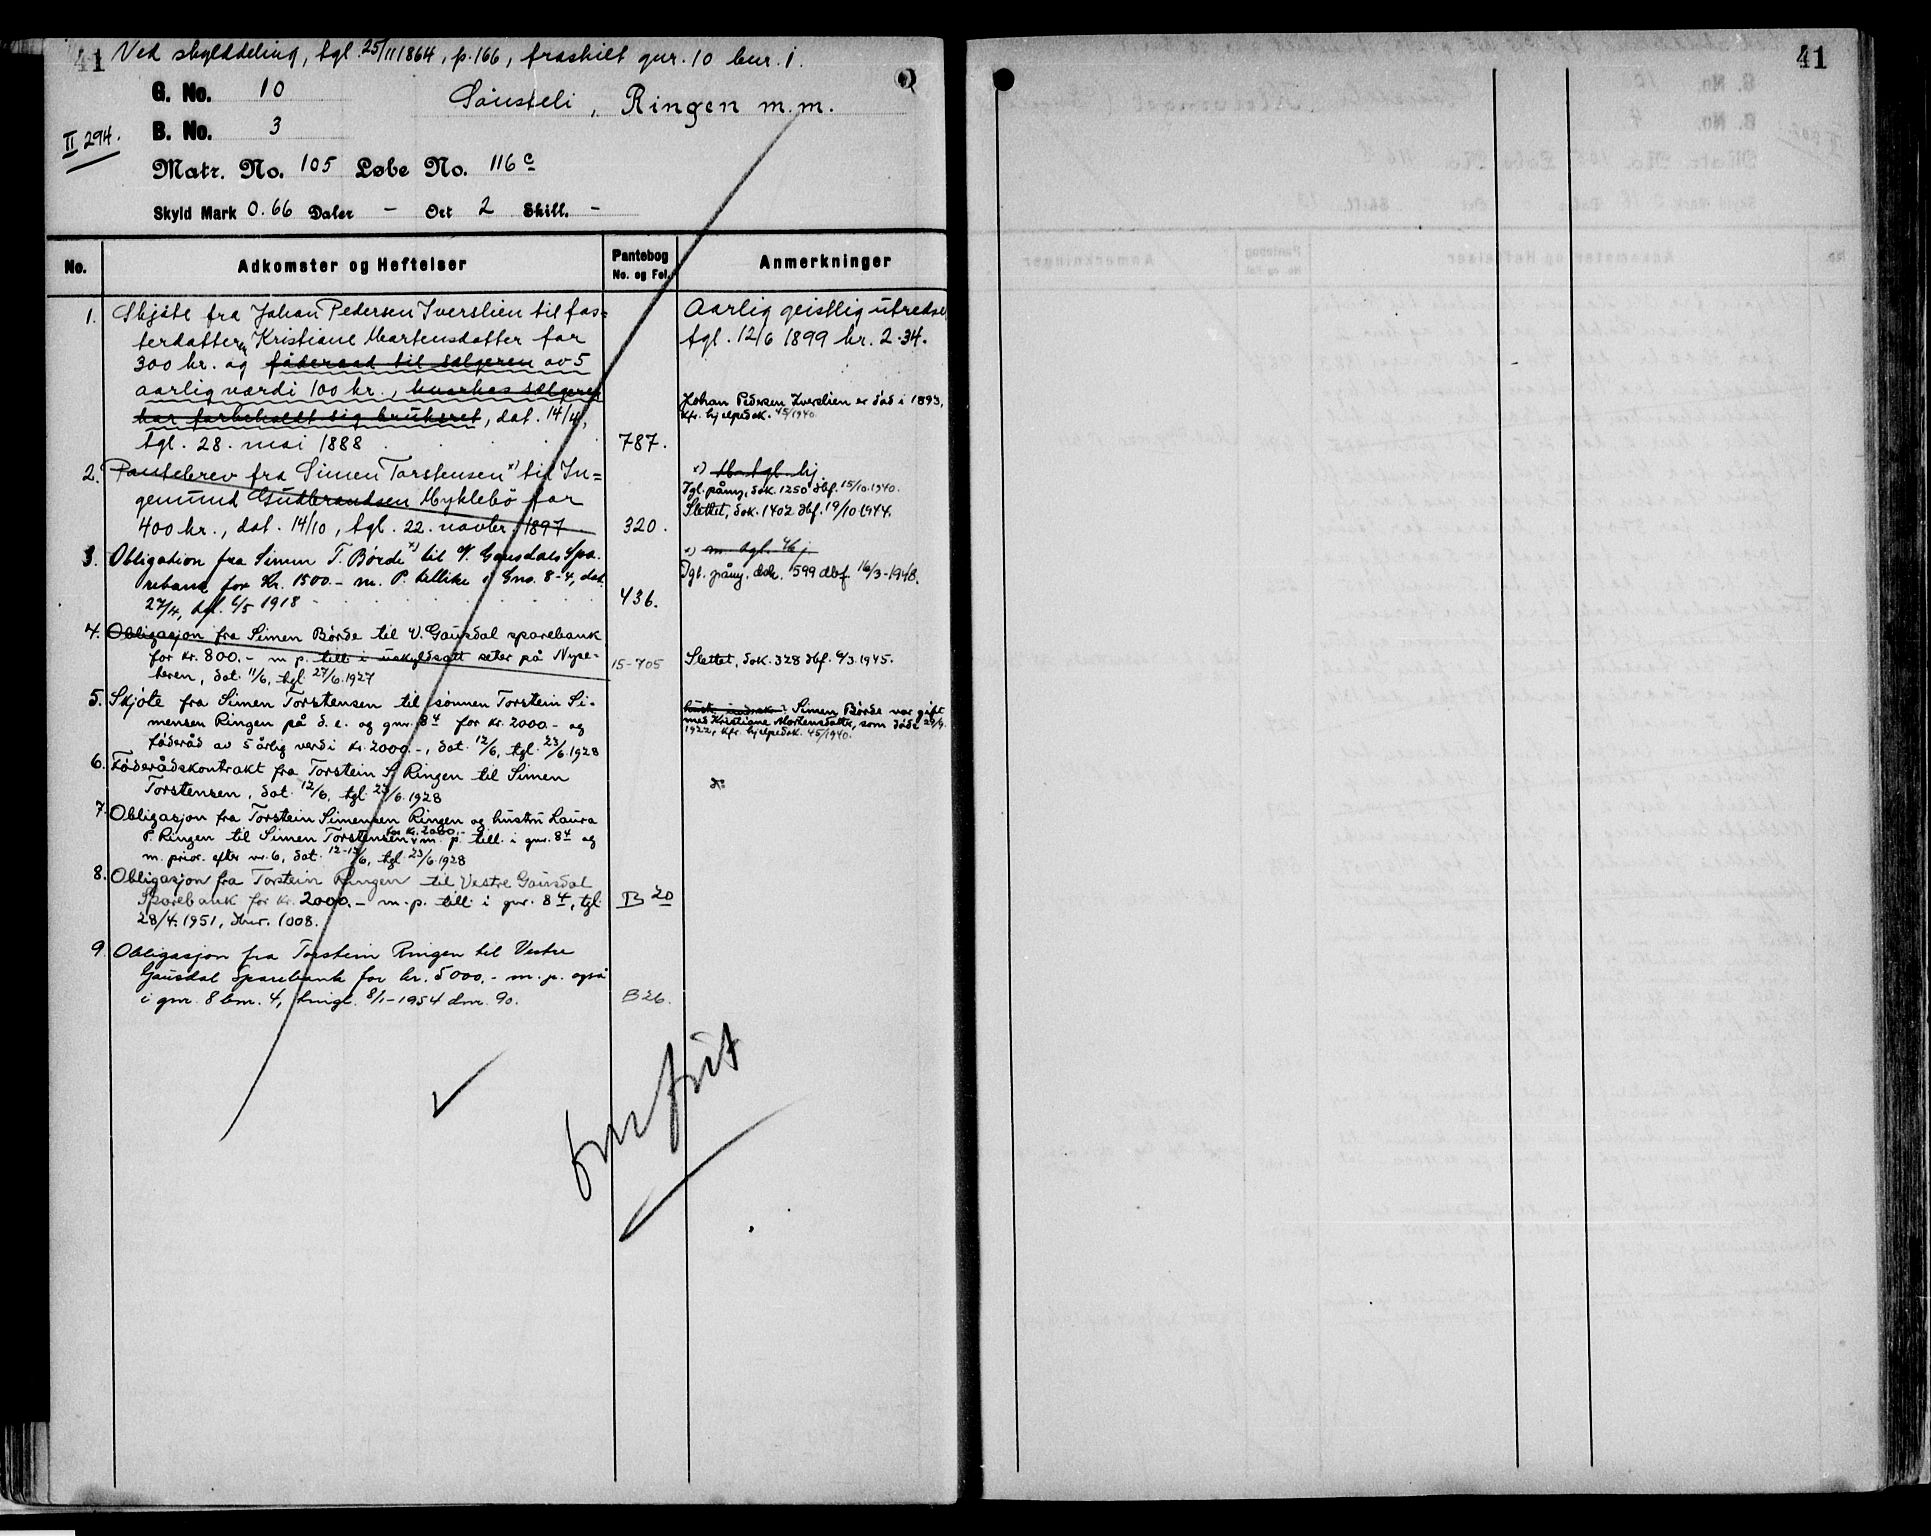 41 Ved skylddeling, tgl. 25/11 1864, p. 166, fraskilt gnr. 10 bnr. 1.
G. No. 10
Sôusteli, Ringen m.m.
B. No. 3
II 294.
Matr. No. 105 Løbe No. 116 c
Skyld Mark 0.66 Daler - Ort 2 Skill. -
No. Adkomster og Heftelser Pantebog No. og Fol. Anmerkninger
1. Skjöte fra Johan Pedersen Iverslien til fos=
terdatteren Kristiane Mortensdatter for
300 kr. og föderaad til sælgeren av 5
aarlig værdi 100 kr., hvorhos sælgeren
har forbeholdt sig bruket, dat. 14/4,
tgl. 28. mai 1888 787.
Aarlig geistlig utredsel
tgl. 12/6 1899 kr. 2.34.
Johan Pedersen Iverslien er död i 1893,
kfr. hjelpedok. 45/1940.
2. Pantebrev fra Simen Torstensen x) til In=
gemund Gudbrandsen Myklebö for
400 kr., dat. 14/10, tgl. 22. novbr. 1897 320.
x) U. tgl. hj.
Tgl. påny, dok. 1250 dbf. 15/10.1940.
Slettet, dok. 1402 dbf. 19/10 1944.
3. Obligation fra Simen T. Børde x) til V. Gausdals Spa-
rebank for Kr. 1500.- m. P. tillike i Gno. 8-4, dat.
27/4, tgl. 6/5 1918 436.
Tgl. påny, dok. 599 dbf. 16/3-1948.
4. Obligasjon fra Simen Børde til V. Gausdal sparebank
for kr. 800.- m p. till. i uskyldsatt seter på Nyse-
teren, dat. 11/6, tgl. 27/6.1927 15-705
Slettet, dok. 328 dbf. 6/3.1945.
5. Skjöte fra Simen Torstensen til sönnen Torstein Si-
mensen Ringen på d. e. og gnr. 8 4 for kr. 2000.- og
föderåd av 5 årlig verdi kr. 2000.-, dat. 12/6, tgl. 23/6.1928
Simen Børde var gift
med Kristiane Mortensdatter, som döde 29/9
1922, kfr. hjelpedok. 45/1940.
6. Föderådskontrakt fra Torstein S. Ringen til Simen
Torstensen, dat. 12/6, tgl. 23/6.1928
7. Obligasjon fra Torstein Simensen Ringen og hustru Laura
P. Ringen til Simen Torstensen for kr. 2000.- m. p. till. i gnr. 8 4 og
m. prior. efter nr. 6, dat. 12-13/6, tgl. 23/6.1928
8. Obligasjon fra Torstein Ringen til Vestre Gausdal
Sparebank for kr. 2000.- m. p. till. i gnr. 8 4, tgl.
28/4.1951, dnr. 1008. B 20
9. Obligasjon fra Torstein Ringen til Vestre
Gausdal Sparebank for kr. 5000,- m. p. også
i gnr. 8 bnr. 4, tingl. 8/1-1954 dnr. 90. B 26.
41